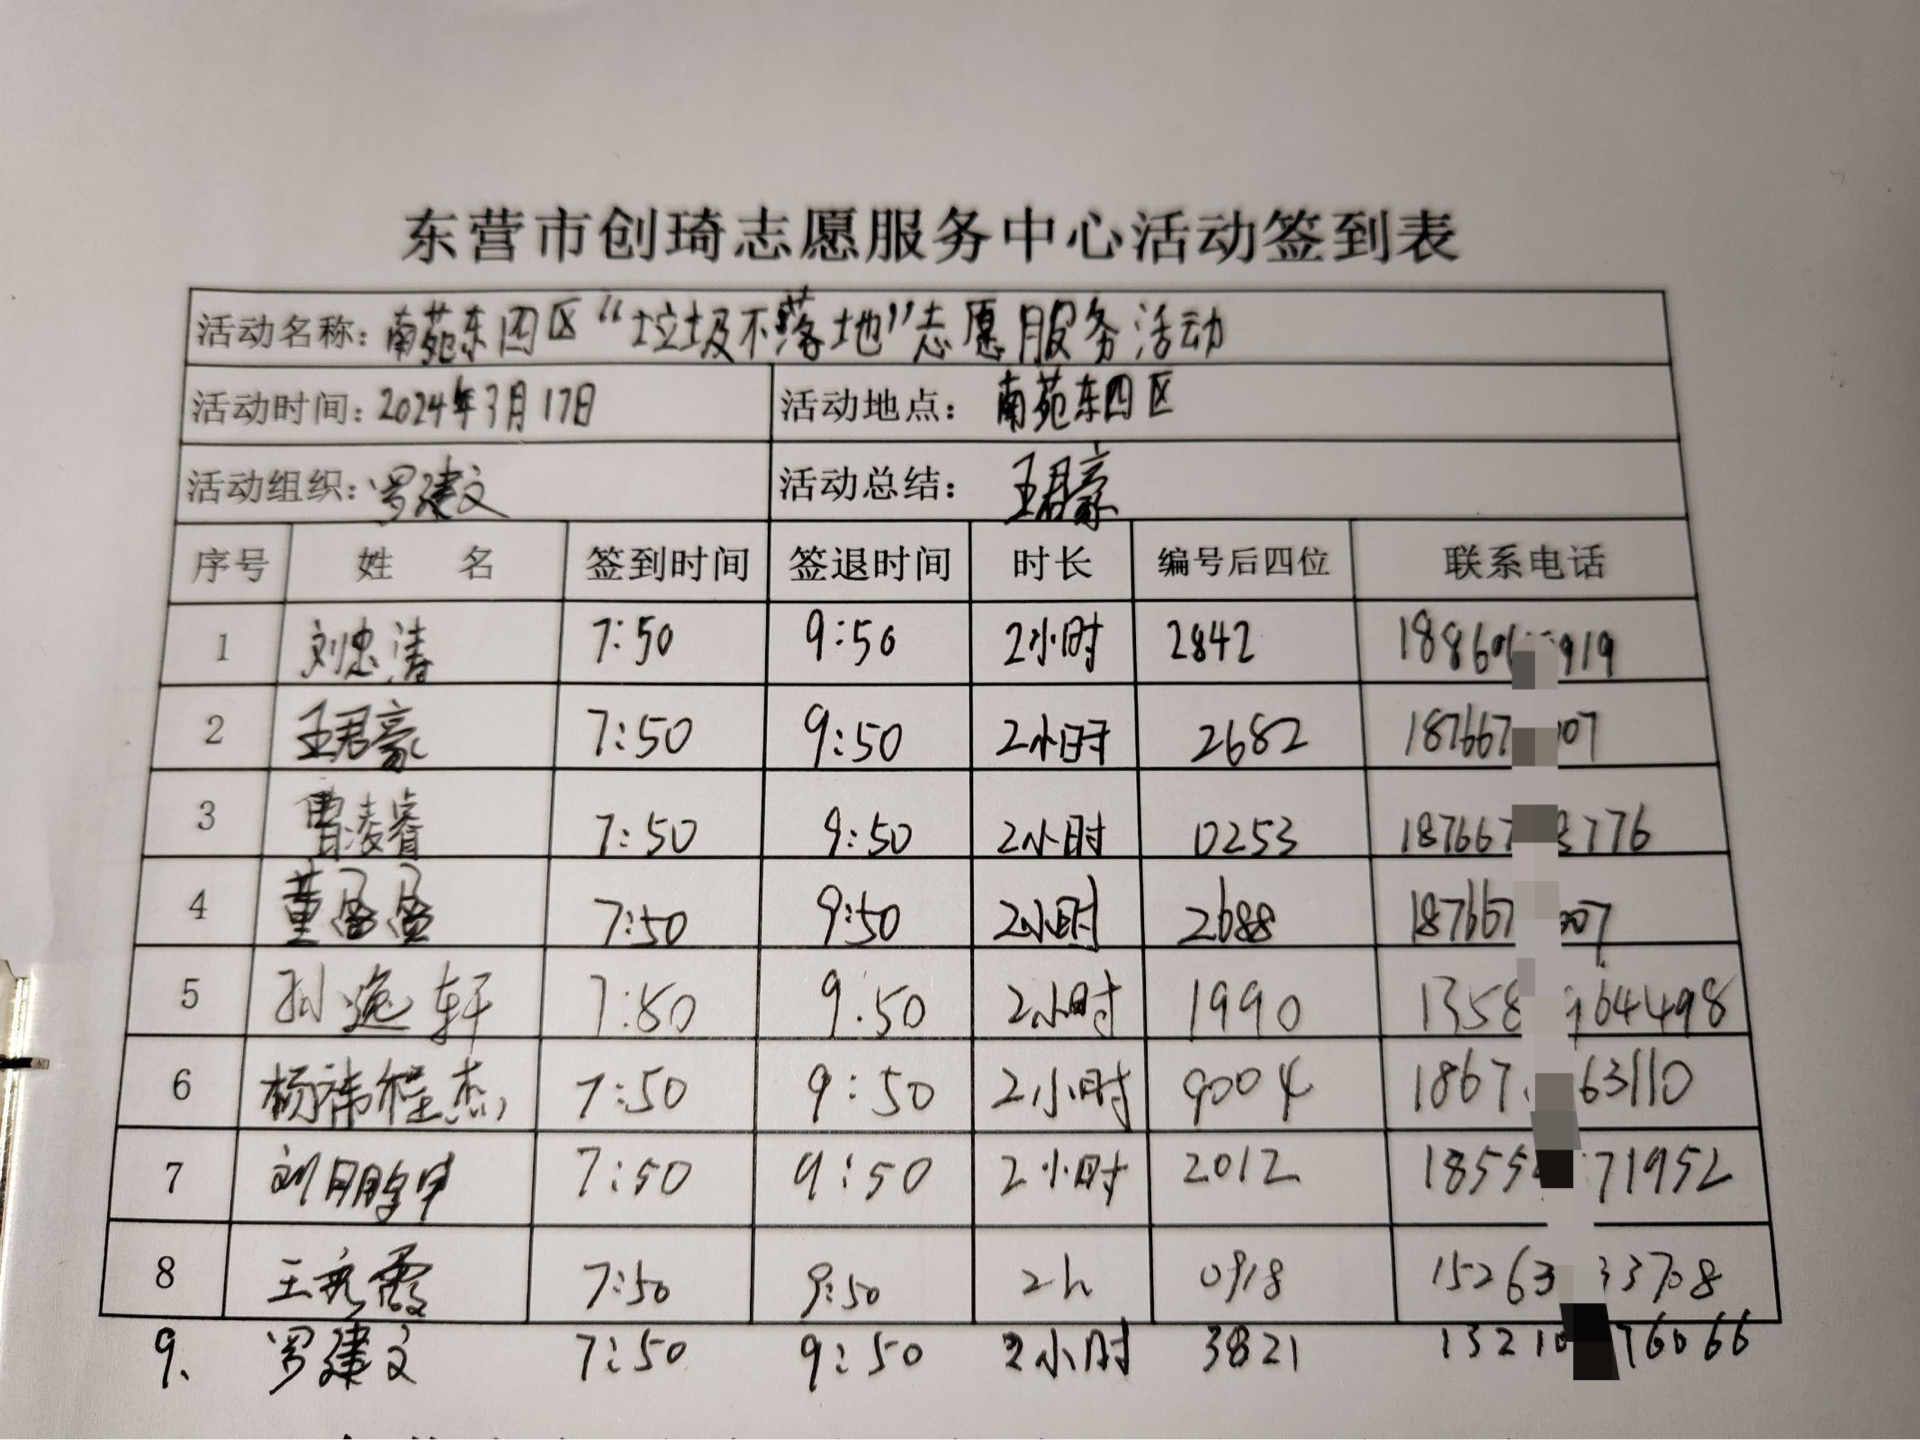 东营市创琦志愿服务中心活动签到表
活动名称：南苑东四区“垃圾不落地”志愿服务活动
活动时间：2024年3月17日 活动地点：南苑东四区
活动组织：罗建文 活动总结：王君豪
序号 姓名 签到时间 签退时间 时长 编号后四位 联系电话
1 刘忠涛 7:50 9:50 2小时 2842 1886 919
2 王君豪 7:50 9:50 2小时 2682 187667 07
3 曹凌睿 7:50 9:50 2小时 0253 187667 3776
4 董盈盈 7:50 9:50 2小时 2688 187667 007
5 孙逸轩 7:50 9.50 2小时 1990 1358 9644498
6 杨祎程杰 7:50 9:50 2小时 9004 1867 63110
7 7:50 9:50 2小时 2012 1855 71952
8 王秀霞 7:50 9:50 2h 0918 15263 33708
9. 罗建文 7:50 9:50 2小时 3821 13210 76066